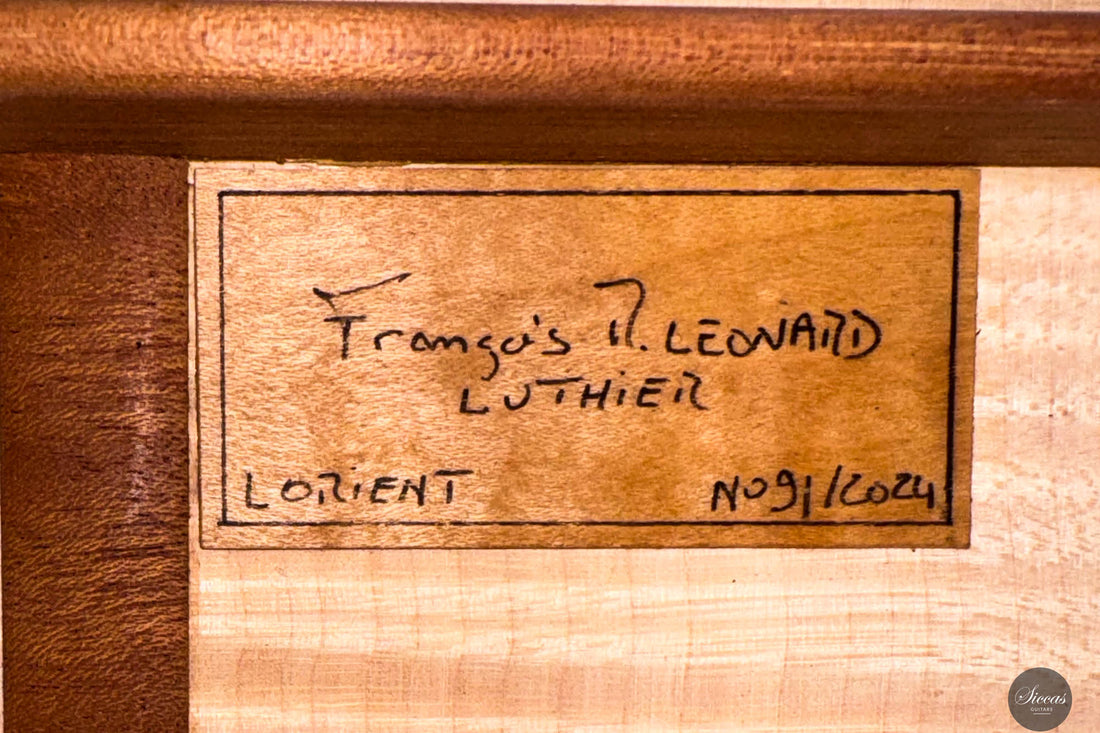 François R. LEONARD
LUTHiER
LORiENT
No91/2024
Siccas
GUITARS